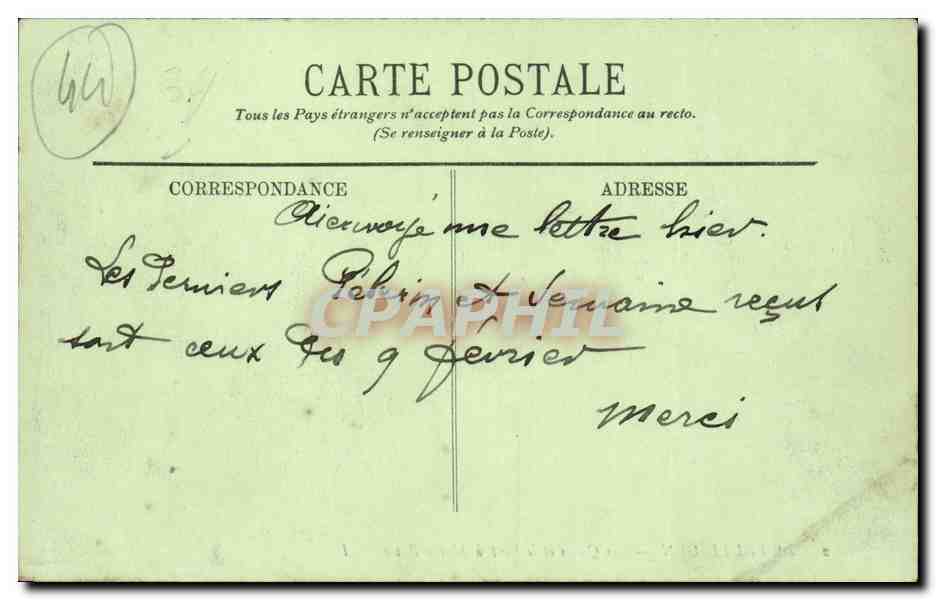 44
34
CARTE POSTALE
Tous les Pays étrangers n'acceptent pas la Correspondance au recto.
(Se renseigner à la Poste).
CORRESPONDANCE
ADRESSE
Ai envoyé une lettre hier.
Les derniers Pélerin et Semaine reçus
sont ceux des 9 février
Merci
CPAPHIL